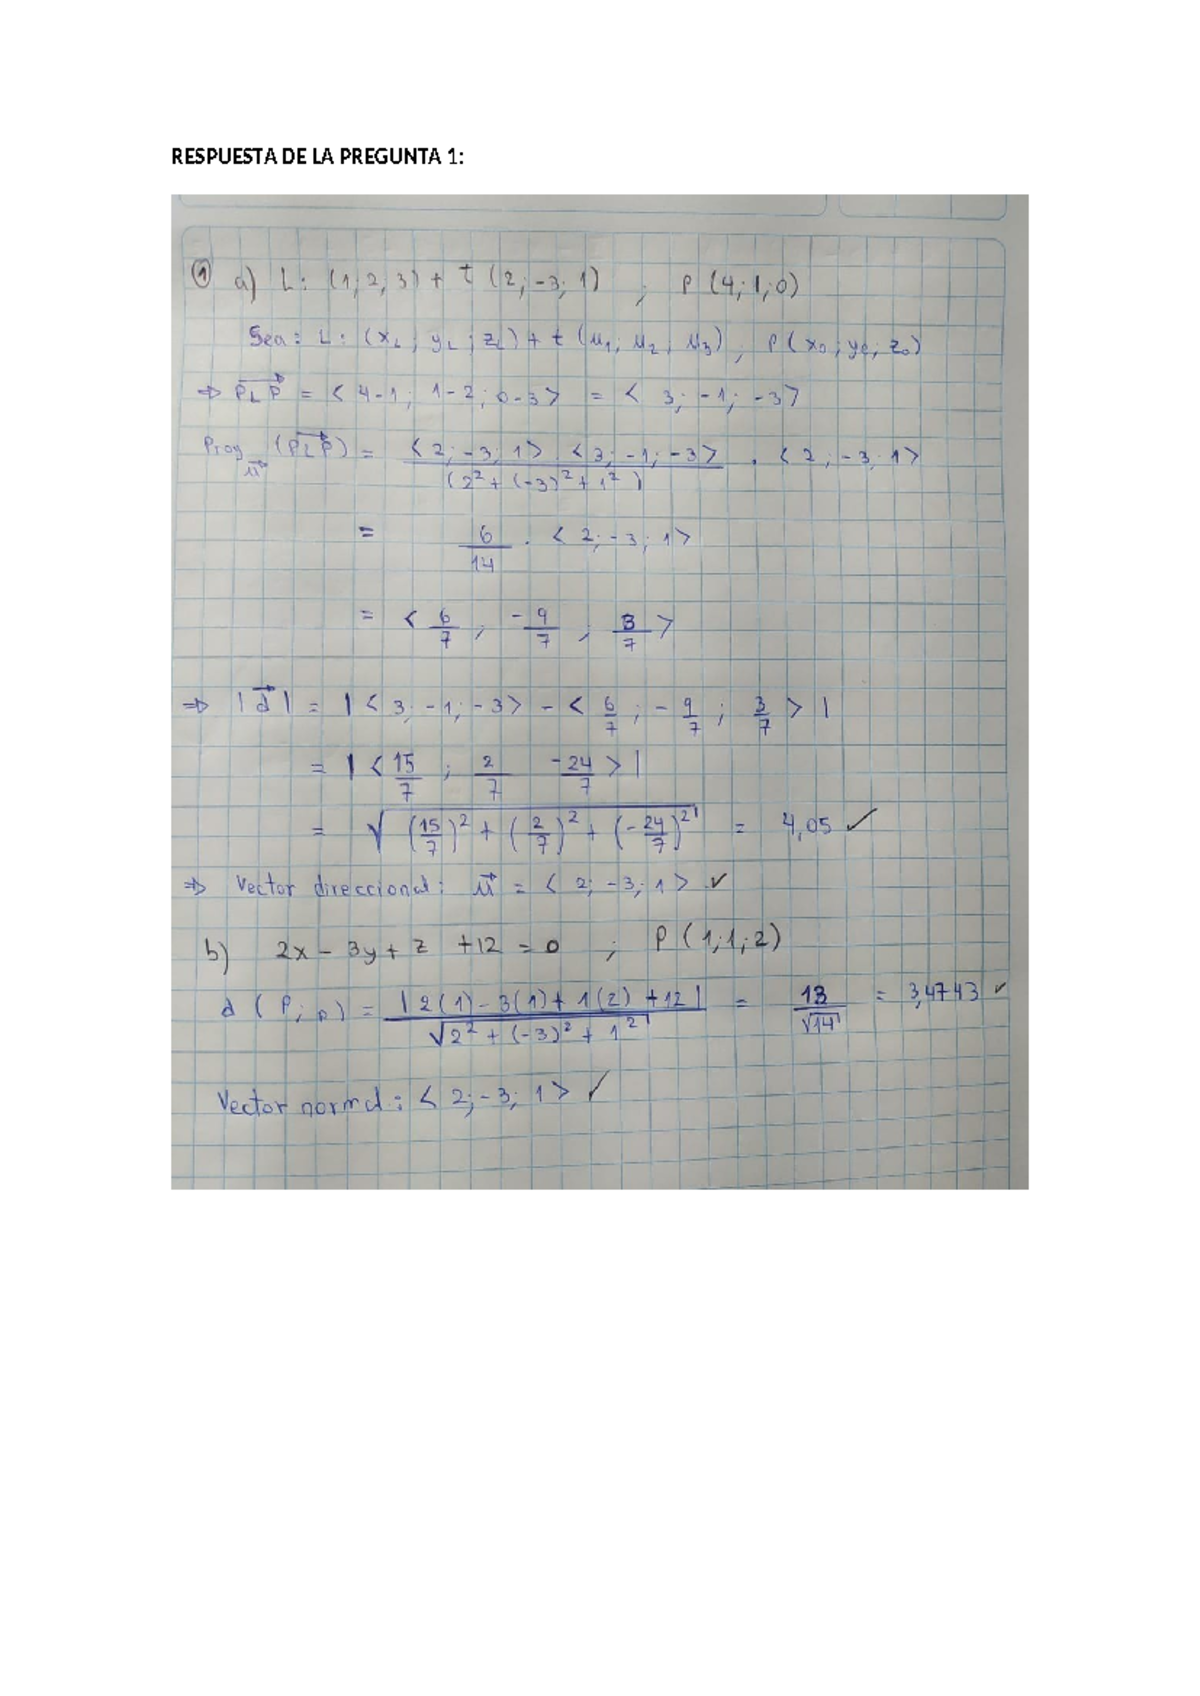 RESPUESTA DE LA PREGUNTA 1:
① a) L: (1; 2; 3) + t (2; -3; 1) ; P (4; 1; 0)
Sea: L: (x_L; y_L; z_L) + t (μ₁; μ₂; μ₃), P(x₀; y₀; z₀)
⇒ P_LP = < 4-1; 1-2; 0-3 > = < 3; -1; -3 >
Proy_μ (P_LP) = < 2; -3; 1 > . < 3; -1; -3 > / (2² + (-3)² + 1²) . < 2; -3; 1 >
= 6/14 . < 2; -3; 1 >
= < 6/7 ; -9/7 ; 3/7 >
⇒ |d| = | < 3; -1; -3 > - < 6/7 ; -9/7 ; 3/7 > |
= | < 15/7 ; 2/7 -24/7 > |
= √((15/7)² + (2/7)² + (-24/7)²) = 4,05 ✓
⇒ Vector direccional: μ = < 2; -3; 1 > ✓
b) 2x - 3y + z +12 = 0 ; P (1; 1; 2)
d (P; p) = | 2(1) - 3(1) + 1(2) +12 | / √(2² + (-3)² + 1²) = 13/√14 = 3,4743 ✓
Vector normal: < 2; -3; 1 > ✓